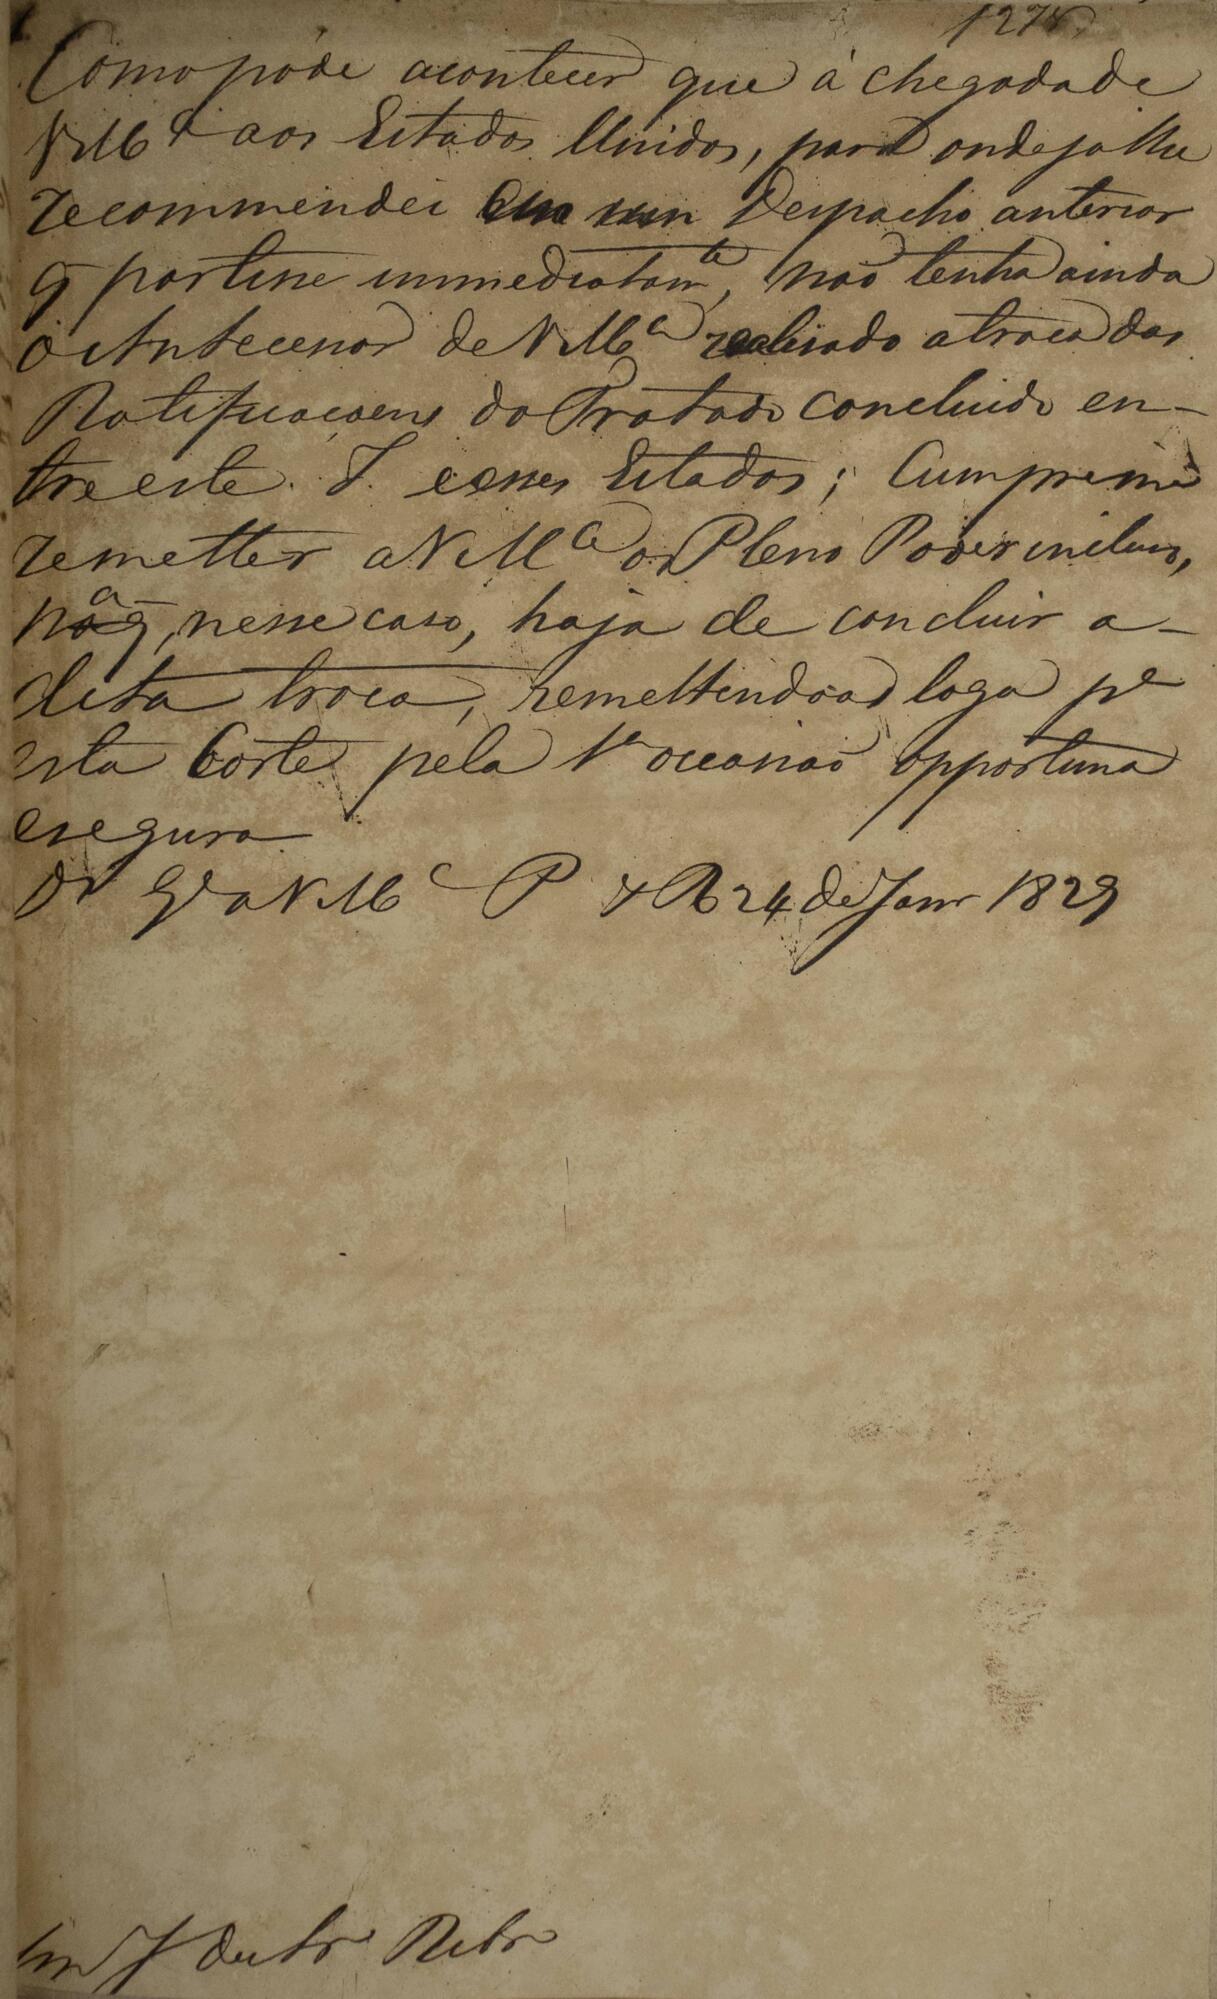 Como póde acontecer que á chegada de
V Mce aos Estados Unidos, para onde ja lhe
recommendei em um Despacho anterior
q̄ partisse immediatamte, não tenha ainda
o Antecessor de V Mce realisado a troca das
Ratificaçoens do Tratado concluido en-
tre este I. e esses Estados; Cumpre-me
remetter a V Mce o Pleno Poder incluso,
pa q̄, nesse caso, haja de concluir a
dita troca, remettendo-a logo pa
esta Corte pela 1a occasiaõ opportuna
e segura
Ds Gde a V Mce P 24 de Janro 1829